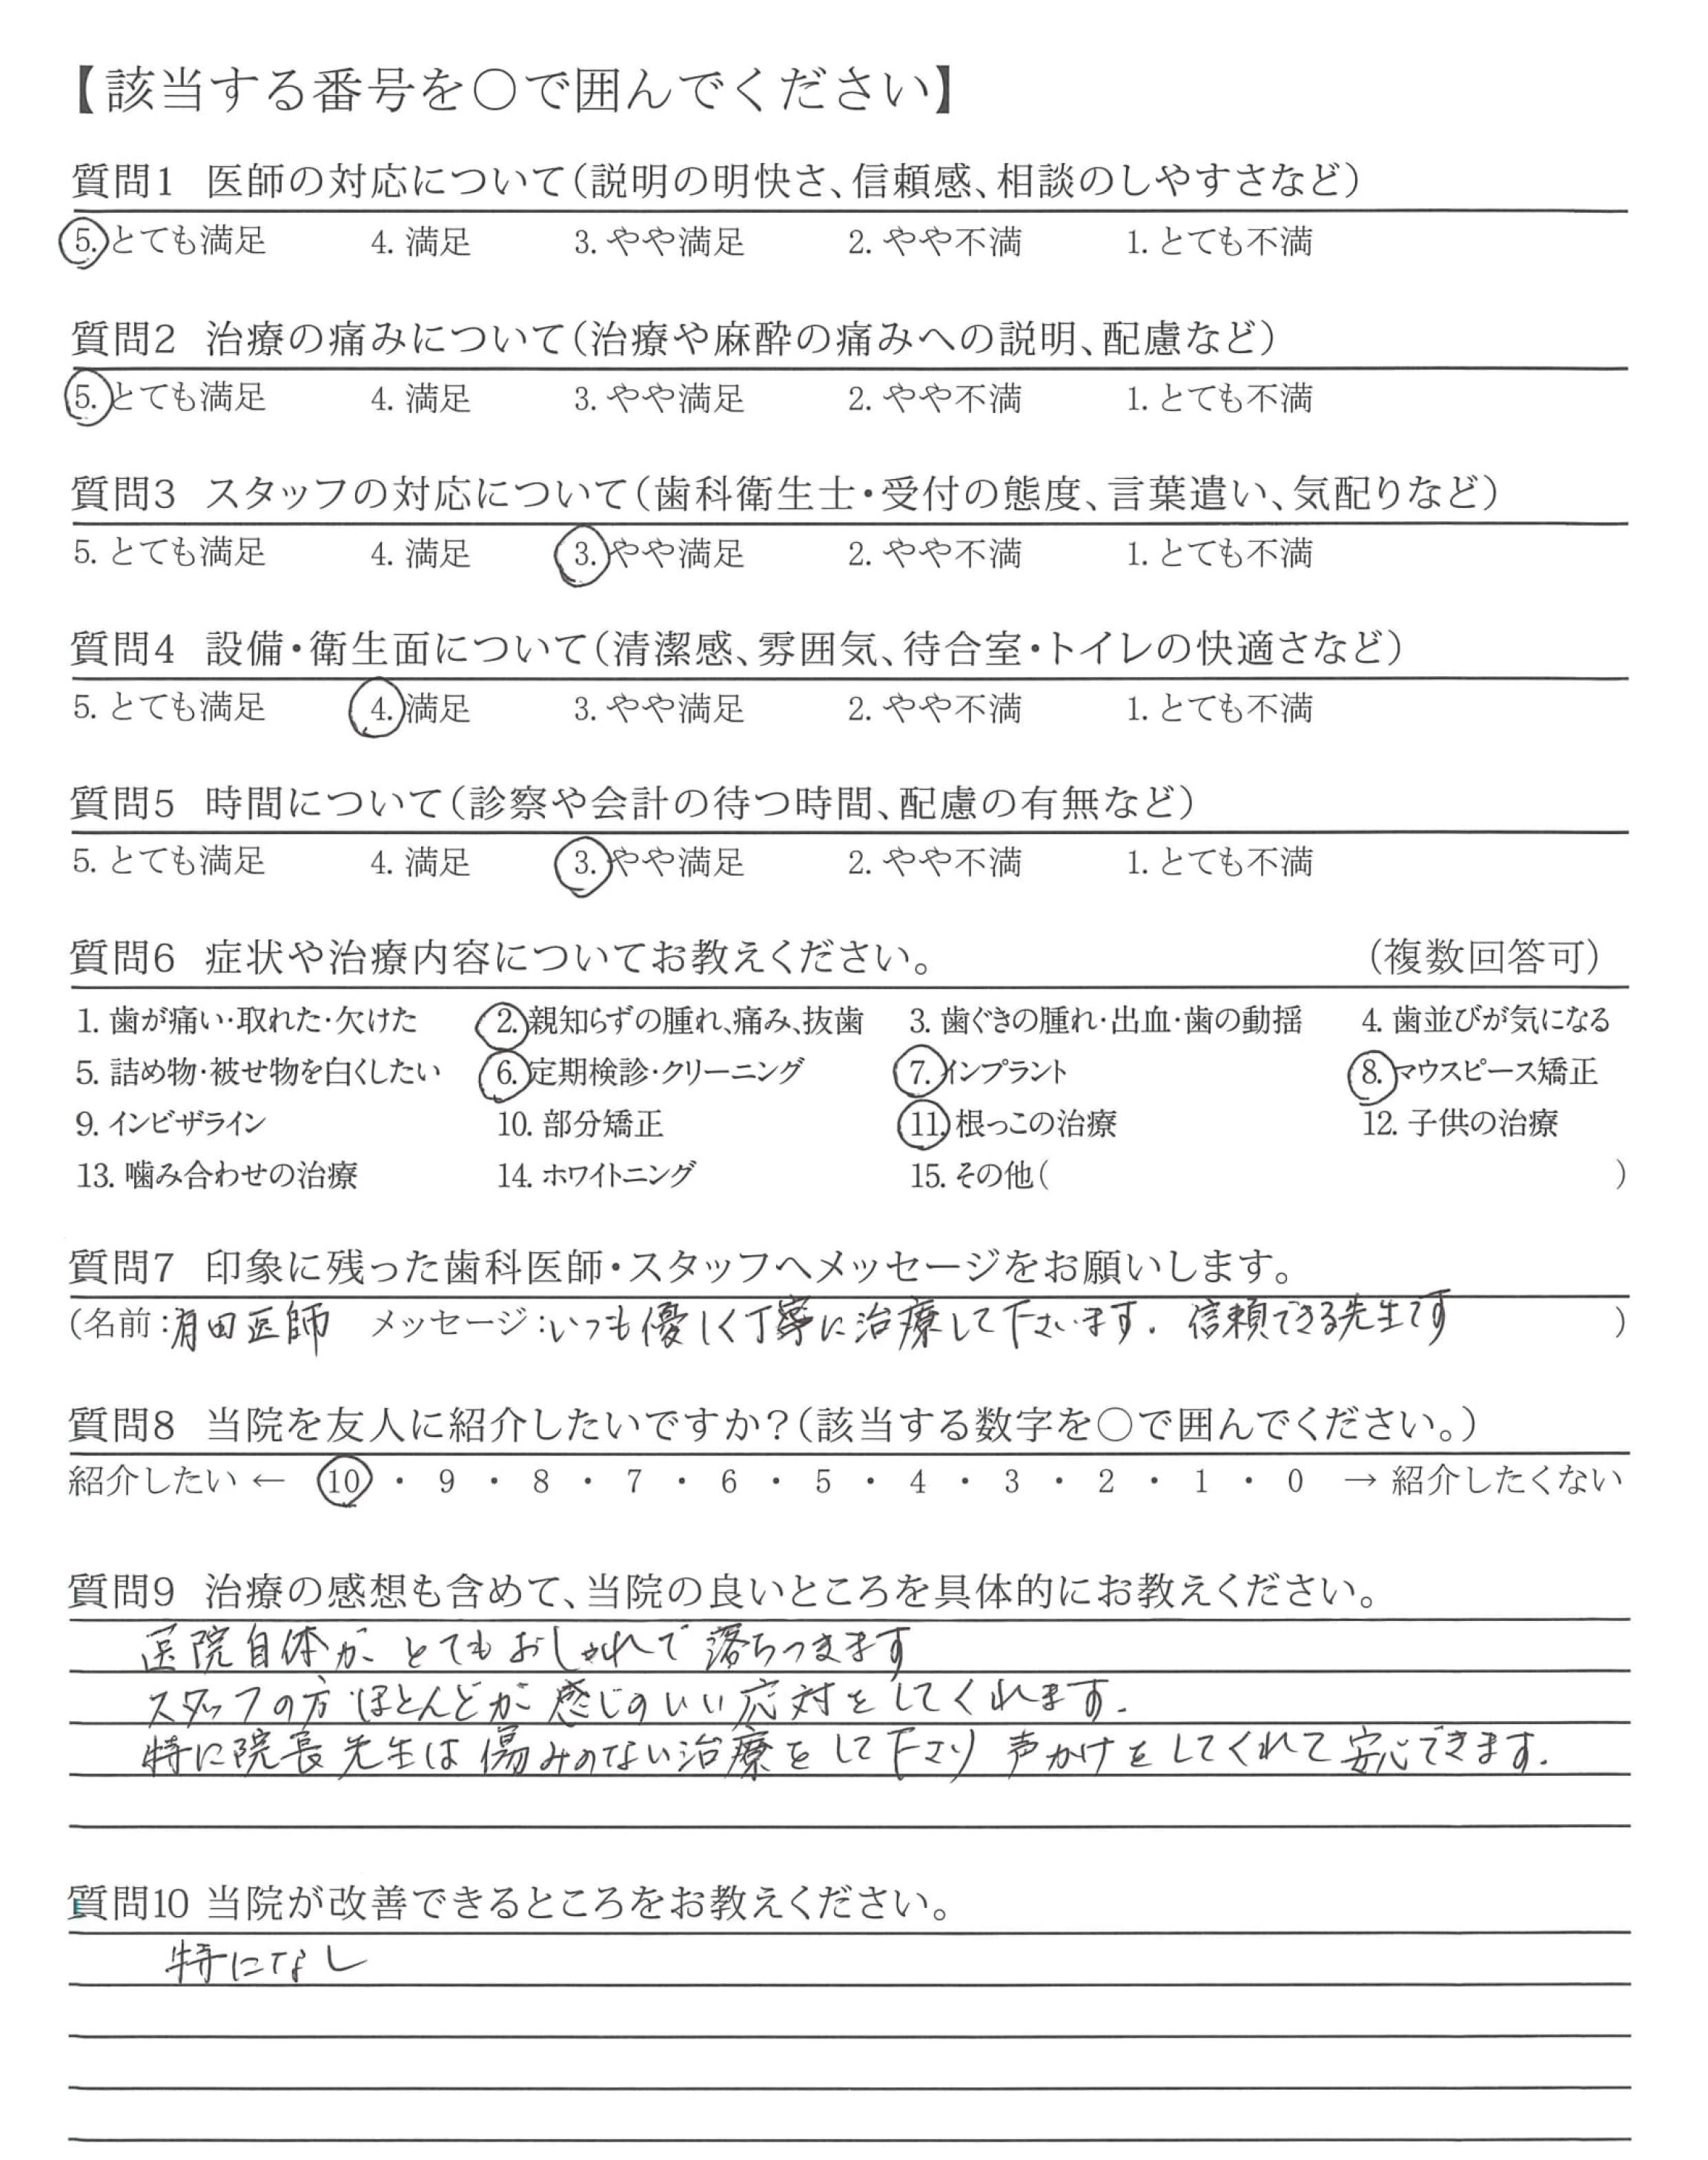 【該当する番号を○で囲んでください】
質問1 医師の対応について(説明の明快さ、信頼感、相談のしやすさなど)
5. とても満足 4. 満足 3. やや満足 2. やや不満 1. とても不満
質問2 治療の痛みについて(治療や麻酔の痛みへの説明、配慮など)
5. とても満足 4. 満足 3. やや満足 2. やや不満 1. とても不満
質問3 スタッフの対応について(歯科衛生士・受付の態度、言葉遣い、気配りなど)
5. とても満足 4. 満足 3. やや満足 2. やや不満 1. とても不満
質問4 設備・衛生面について(清潔感、雰囲気、待合室・トイレの快適さなど)
5. とても満足 4. 満足 3. やや満足 2. やや不満 1. とても不満
質問5 時間について(診察や会計の待つ時間、配慮の有無など)
5. とても満足 4. 満足 3. やや満足 2. やや不満 1. とても不満
質問6 症状や治療内容についてお教えください。 (複数回答可)
1. 歯が痛い・取れた・欠けた 2. 親知らずの腫れ、痛み、抜歯 3. 歯ぐきの腫れ・出血・歯の動揺 4. 歯並びが気になる
5. 詰め物・被せ物を白くしたい 6. 定期検診・クリーニング 7. インプラント 8. マウスピース矯正
9. インビザライン 10. 部分矯正 11. 根っこの治療 12. 子供の治療
13. 噛み合わせの治療 14. ホワイトニング 15. その他( )
質問7 印象に残った歯科医師・スタッフへメッセージをお願いします。
(名前:有田医師 メッセージ:いつも優しく丁寧に治療して下さいます. 信頼できる先生です )
質問8 当院を友人に紹介したいですか?(該当する数字を○で囲んでください。)
紹介したい ← 10 ・ 9 ・ 8 ・ 7 ・ 6 ・ 5 ・ 4 ・ 3 ・ 2 ・ 1 ・ 0 → 紹介したくない
質問9 治療の感想も含めて、当院の良いところを具体的にお教えください。
医院自体が とてもおしゃれで 落ちつきます
スタッフの方 ほとんどが 感じのいい応対をしてくれます.
特に院長先生は 傷みのない治療をして下さり 声かけをしてくれて安心できます.
質問10 当院が改善できるところをお教えください。
特になし